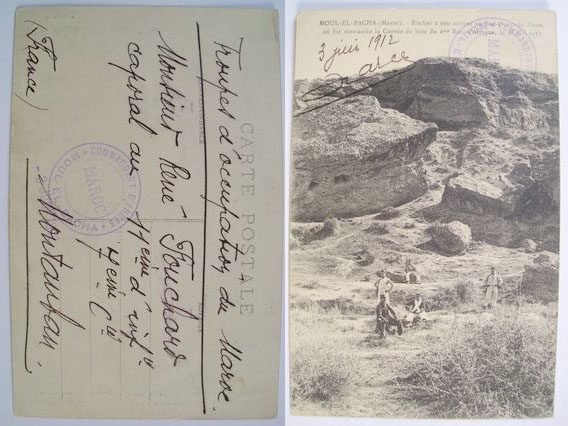 CARTE POSTALE
Troupes d'occupation du Maroc.
Monsieur René Fouchard
caporal au 11ème d'infie
7ème Cie
Montauban.
(France)
MAROC
MOUL-EL-BACHA (Maroc). - Rochers à peu
où fut massacrée la Corvée de bois du 2me Bat. d'Afrique, le
3 juin 1912